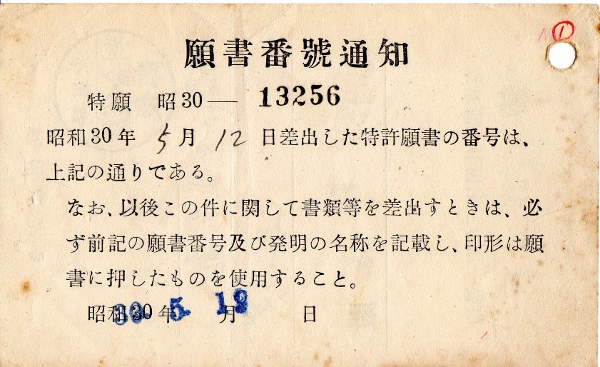 願書番號通知
特願 昭30— 13256
昭和30年 5月 12日差出した特許願書の番号は、
上記の通りである。
なお、以後この件に関して書類等を差出すときは、必
ず前記の願書番号及び発明の名称を記載し、印形は願
書に押したものを使用すること。
昭和30年 月 日
30. 5. 18
①